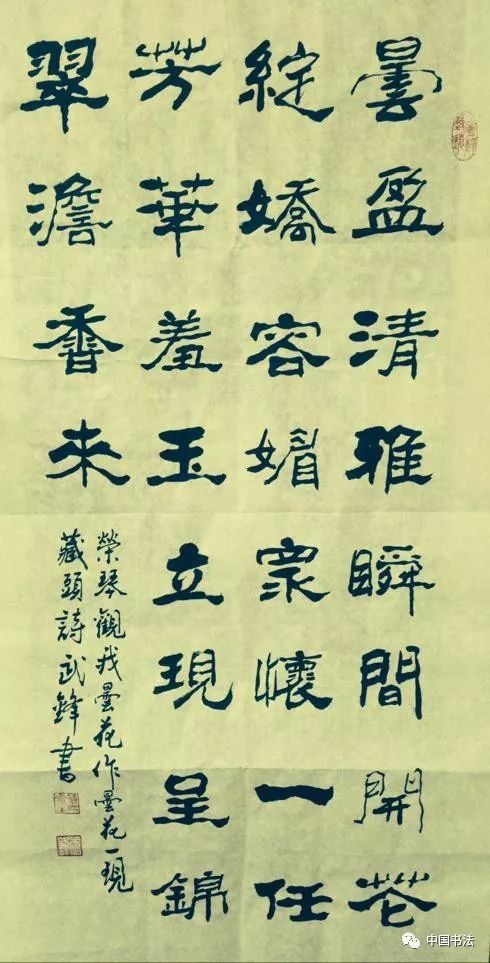 曇盈清雅瞬間開花
綻嬌容媚眾懷一任
芳華羞玉立現呈錦
翠澹香來
榮琴觀我曇花作曇花一現
藏頭詩武鋒書
中国书法